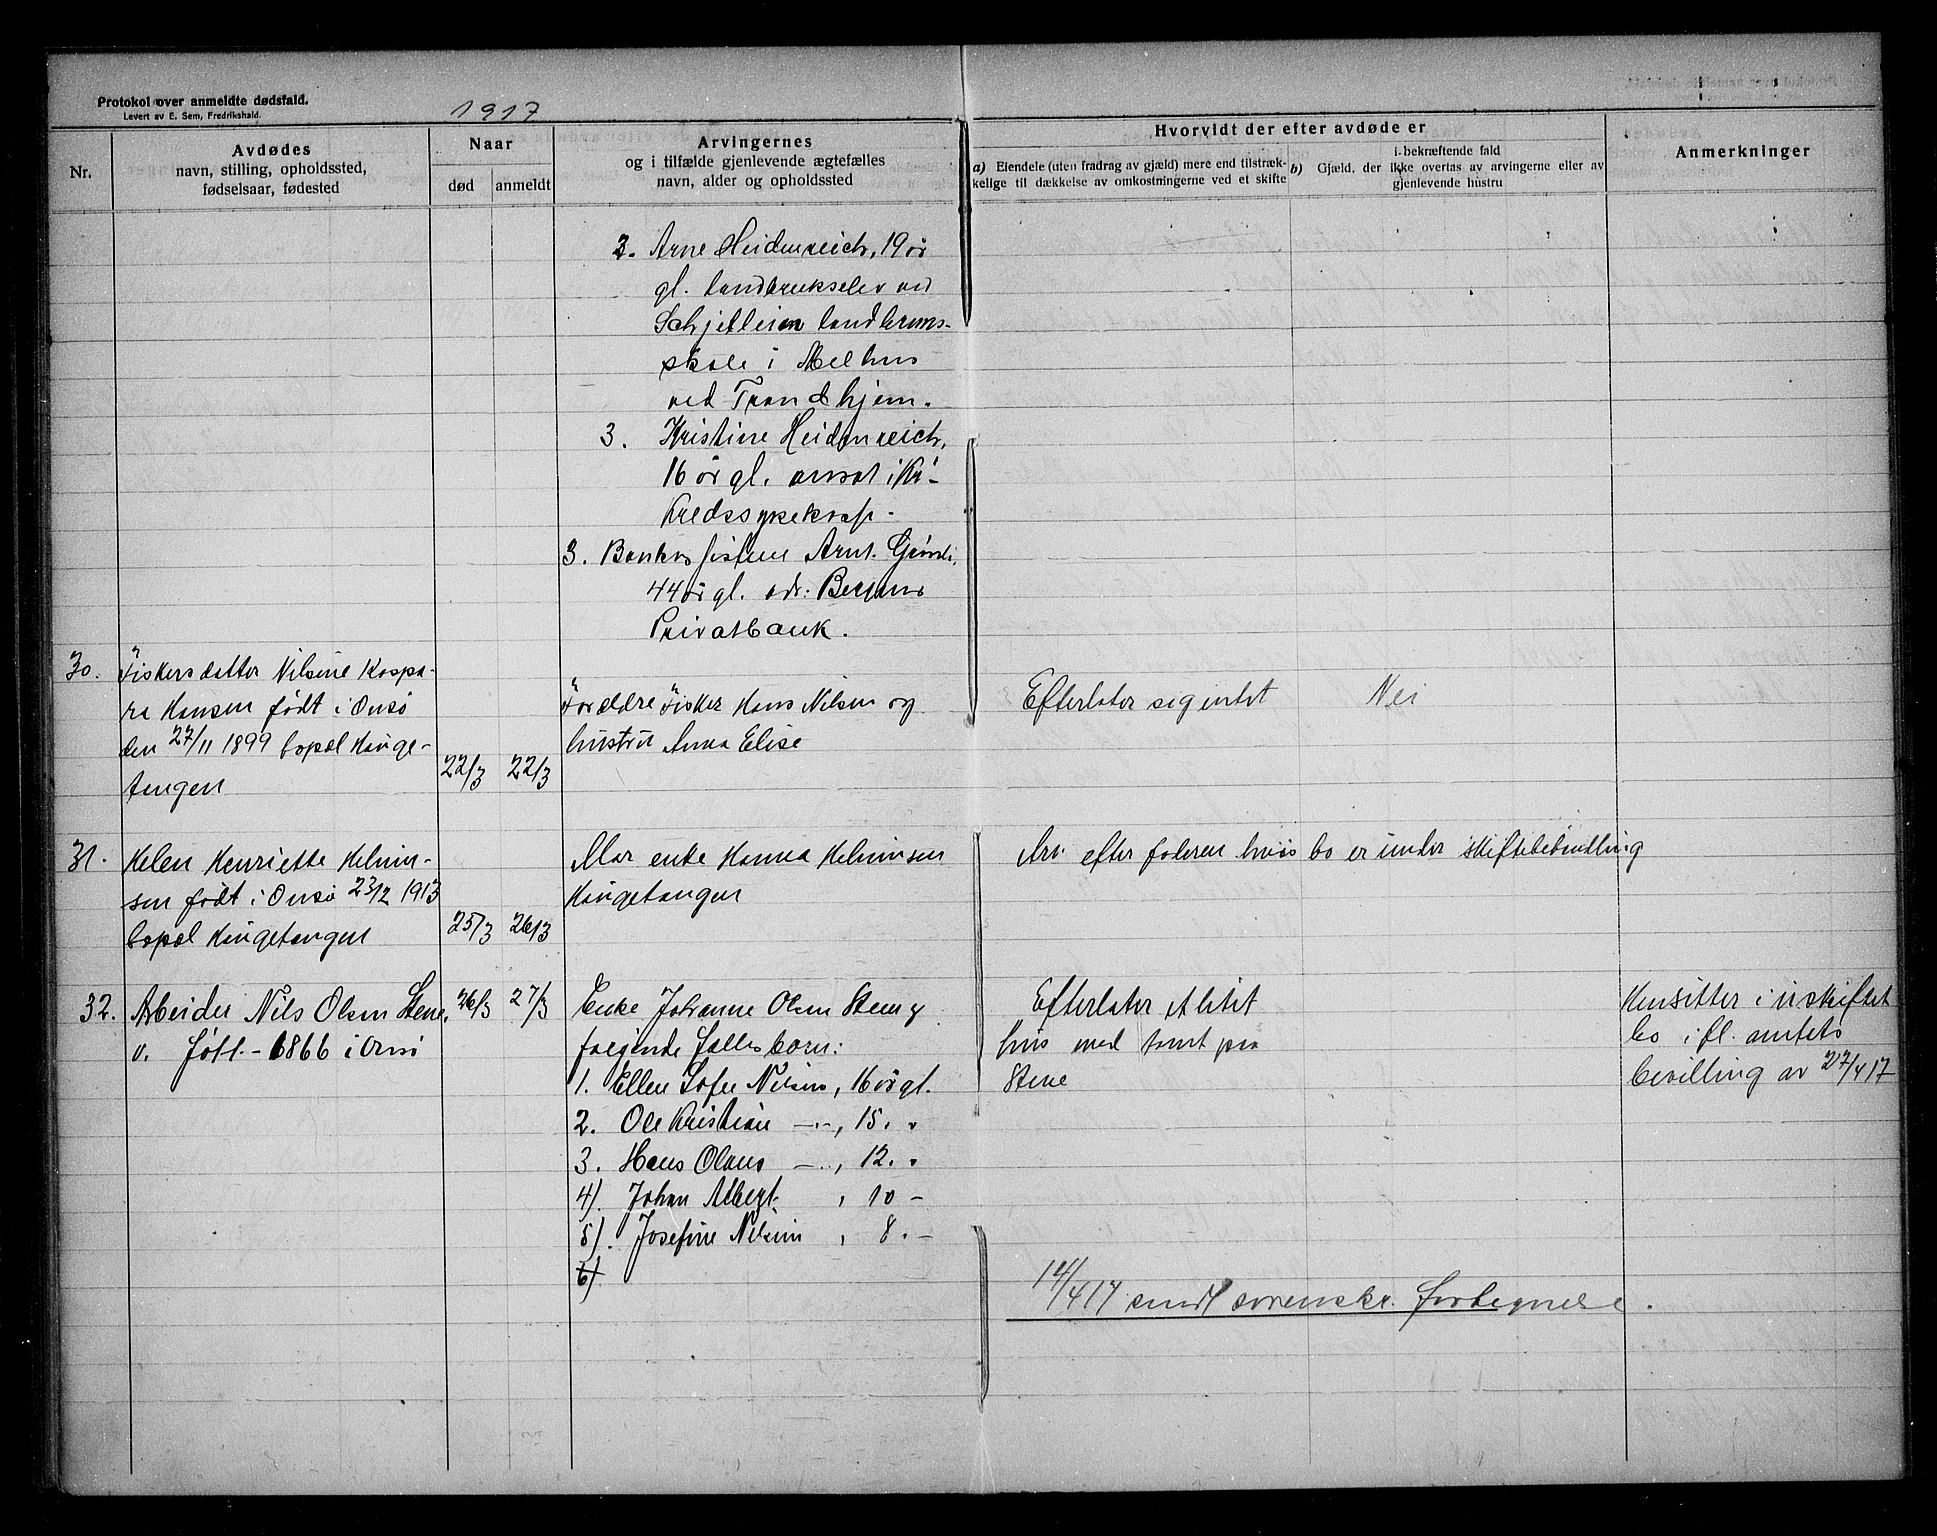 Protokol over anmeldte dødsfald.
Levert av E. Sem, Fredrikshald.
1917
Nr.
Avdødes
navn, stilling, opholdssted,
fødselsaar, fødested
Naar
død
anmeldt
Arvingernes
og i tilfælde gjenlevende ægtefælles
navn, alder og opholdssted
Hvorvidt der efter avdøde er
a) Eiendele (uten fradrag av gjæld) mere end tilstræk-
kelige til dækkelse av omkostningerne ved et skifte
i bekræftende fald
b) Gjæld, der ikke overtas av arvingerne eller av
gjenlevende hustru
Anmerkninger
2. Arne Heidenreich, 19 år
gl. landbrukselev ved
landbruks-
skole i Melhus
ved Trondhjem.
3. Kristine Heidenreich,
16 år gl. ansat i Kr.
Kredssykekasse.
3. Arnt
44 år gl. adr. Bergens
Privatbank.
30.
Fiskersdatter Nilsine Kaspa-
ra Hansen født i Onsø
den 27/11 1899 bopæl Hauge-
tangen
22/3
22/3
Forældre Fisker Hans Nilsen og
hustru Anna Elise
Efterlater sig intet
Nei
31.
Helen Henriette Helmin-
sen født i Onsø 23/2 1913
bopæl Haugetangen
25/3
26/3
Mor enke Hanna Helminsen
Haugetangen
Arv efter faderen hvis bo er under skiftebehandling
32.
Arbeider Nils Olsen Stene,
26/3
27/3
født - 1866 i Onsø
Enke Johanne Olsen Stene og
følgende fælles børn:
1. Ellen Sofie Nilsen, 16 år gl.
2. Ole Kristian —"—, 15. "
3. Hans Olaus —"—, 12. "
4). Johan Albert , 10 –
5). Josefine Nilsen , 8. –
6)
Efterlater et litet
hus med tomt paa
Stene
Hensitter i uskiftet
bo ifl. amtets
bevilling av 27/4 17
14/4 17 sendt sorenskr. fortegnelse.